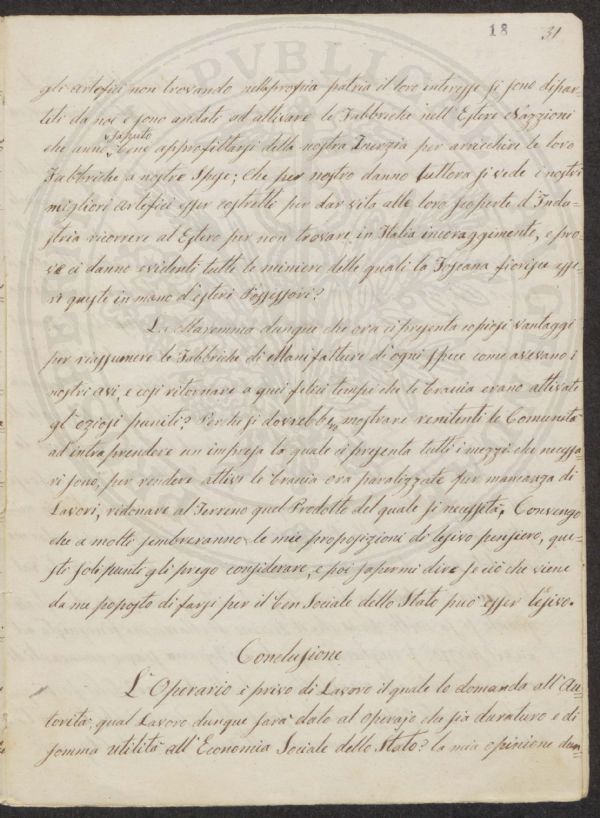 18 31
gli artefici non trovando nella propria patria il loro interesse si sono dipar=
titi da noi e sono andati ad attivare le Fabbriche nell'Estere Nazzioni
che anno saputo bene approfittarsi della nostra Inerzia per arricchire le loro
Fabbriche a nostre Spese; Che per nostro danno tuttora si vede i nostri
migliori artefici esser costretti per dar vita alle loro scoperte d'Indu=
stria ricorrere al Estero per non trovare in Italia incoraggimento, e pro=
ve ci danno evidenti tutte le miniere delle quali la Toscana fiorisce esse=
re queste in mano d'esteri Possessori?
La Maremma dunque che ora ci presenta copiosi vantaggi
per riassumere le Fabbriche di Manifatture di ogni spece come avevano i
nostri avi, e così ritornare a quei felici tempi che le bracia erano attivate
gl'oziosi puniti? Perche si dovrebbero mostrare renitenti le Comunità
ad intraprendere un impresa la quale ci presenta tutti i mezzi che necessa=
ri sono, per rendere attive le bracia ora paralizzate per mancanza di
Lavori, ridonare al Terreno quel Prodotto del quale si necessita, Convengo
che a molti sembreranno le mie proposizioni di lesivo pensiero, que=
sti soli punti gli prego considerare, e poi sapermi dire se ciò che viene
da me poposto di farsi per il ben Sociale dello Stato può esser lesivo.
Conclusione
L'Operario è privo di Lavoro il quale lo domanda all'Au=
torità, qual Lavoro dunque sara dato al operajo che sia duraturo e di
somma utilità all'Economia Sociale dello Stato? la mia opinione dun=